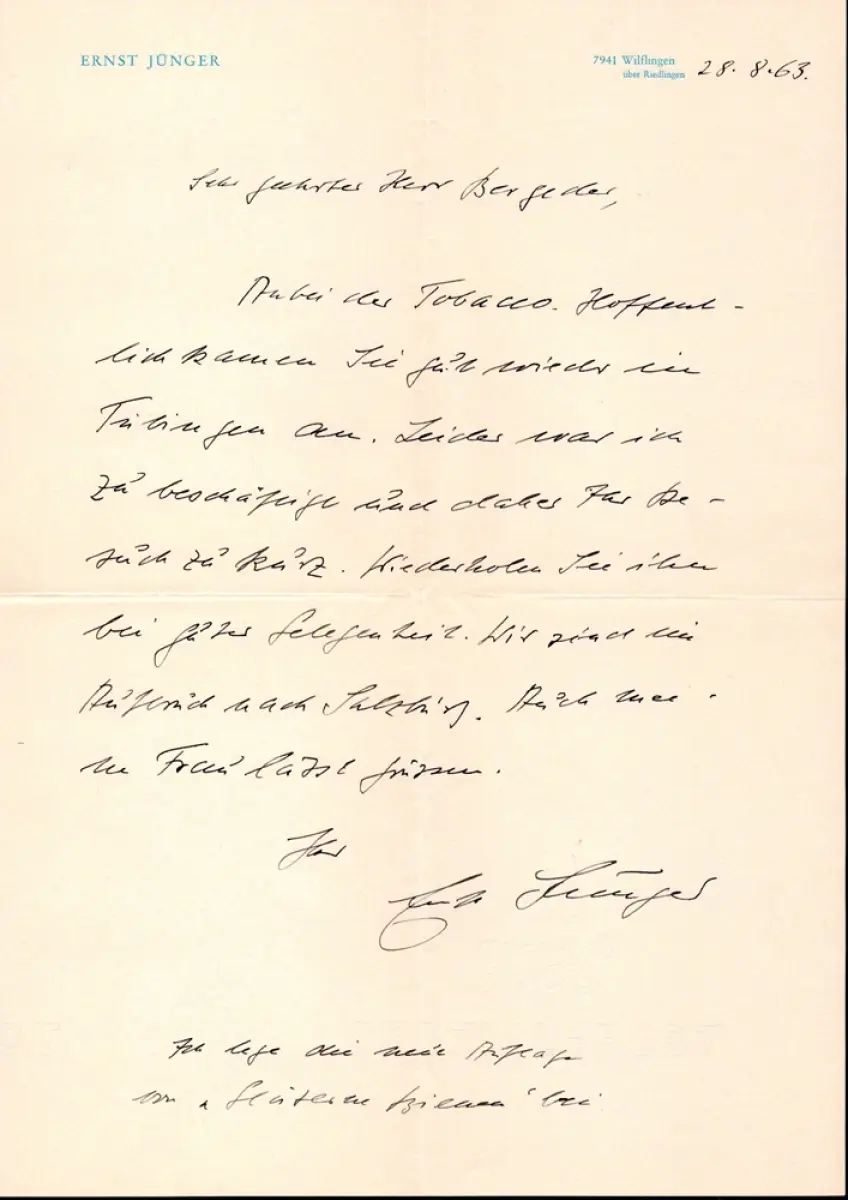 ERNST JÜNGER
7941 Wilflingen
über Riedlingen
28. 8. 63.
Sehr geehrter Herr Bergeder,
Anbei der Tobacco. Hoffent-
lich kamen Sie gut wieder in
Tübingen an. Leider war ich
zu beschäftigt und daher Ihr Be-
such zu kurz. Wiederholen Sie ihn
bei guter Gelegenheit. Wir sind im
Aufbruch nach Salzburg. Auch mei-
ne Frau lässt grüssen.
Ihr
Ernst Jünger
Ich lege die neue Auflage
von „Gläserne Bienen" bei